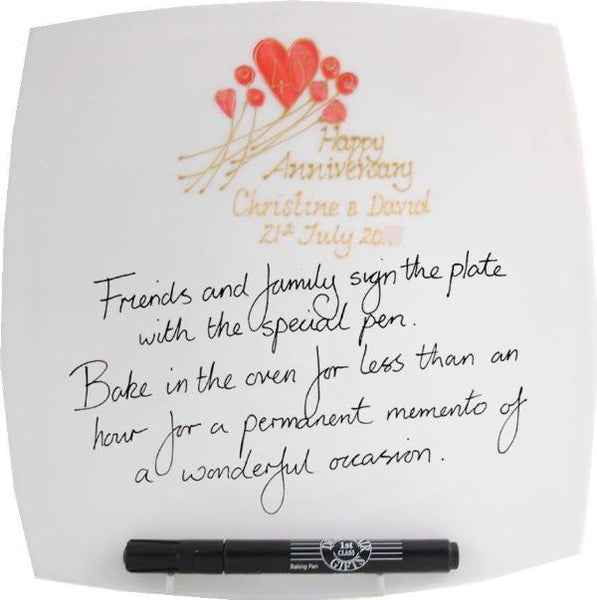 40
Happy
Anniversary
Christine & David
21st July 20..
Friends and family sign the plate
with the special pen.
Bake in the oven for less than an
hour for a permanent memento of
a wonderful occasion.
1st
CLASS
GIFTS
Baking Pen